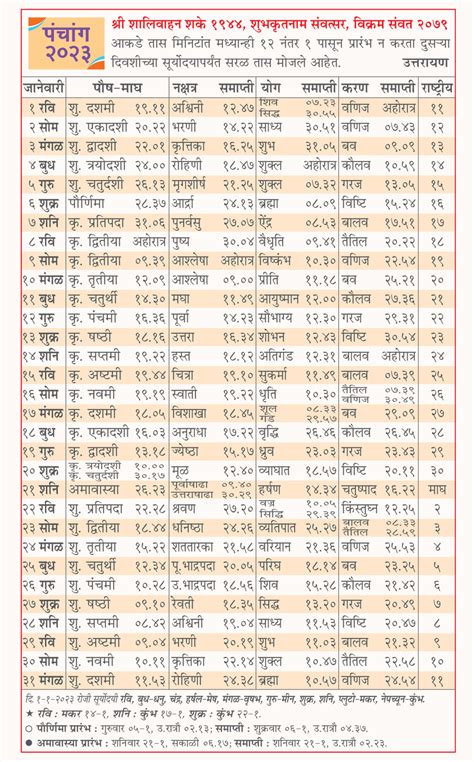 पंचांग
२०२३
श्री शालिवाहन शके १९४४, शुभकृतनाम संवत्सर, विक्रम संवत २०७९
आकडे तास मिनिटांत मध्यान्ही १२ नंतर १ पासून प्रारंभ न करता दुसऱ्या
दिवशीच्या सूर्योदयापर्यंत सरळ तास मोजले आहेत. उत्तरायण
जानेवारी पौष-माघ समाप्ती नक्षत्र समाप्ती योग समाप्ती करण समाप्ती राष्ट्रीय
१ रवि शु. दशमी १९.११ अश्विनी १२.४७ शिव ०७.२३ सिद्ध ३०.५५ वणिज अहोरात्र ११
२ सोम शु. एकादशी २०.२२ भरणी १४.२२ साध्य ३०.५१ वणिज ०७.४३ १२
३ मंगळ शु. द्वादशी २२.०१ कृत्तिका १६.२५ शुभ ३१.०५ बव ०९.०८ १३
४ बुध शु. त्रयोदशी २४.०० रोहिणी १८.४७ शुक्ल अहोरात्र कौलव १०.५९ १४
५ गुरु शु. चतुर्दशी २६.१३ मृगशीर्ष २१.२५ शुक्ल ०७.३२ गरज १३.०५ १५
६ शुक्र पौर्णिमा २८.३७ आर्द्रा २४.१३ ब्रह्मा ०८.०९ विष्टि १५.२४ १६
७ शनि कृ. प्रतिपदा ३१.०६ पुनर्वसु २७.०७ ऐंद्र ०८.५३ बालव १७.५१ १७
८ रवि कृ. द्वितीया अहोरात्र पुष्य ३०.०४ वैधृति ०९.४१ तैतिल २०.२२ १८
९ सोम कृ. द्वितीया ०९.३९ आश्लेषा अहोरात्र विष्कंभ १०.३० वणिज २२.५५ १९
१० मंगळ कृ. तृतीया १२.०९ आश्लेषा ०९.०० प्रीती ११.१८ बव २५.२१ २०
११ बुध कृ. चतुर्थी १४.३० मघा ११.४९ आयुष्मान १२.०० कौलव २७.३६ २१
१२ गुरु कृ. पंचमी १६.३६ पूर्वा १४.२३ सौभाग्य १२.३० गरज २९.३१ २२
१३ शुक्र कृ. षष्ठी १८.१६ उत्तरा १६.३४ शोभन १२.४३ विष्टि ३०.५४ २३
१४ शनि कृ. सप्तमी १९.२२ हस्त १८.१२ अतिगंड १२.३१ बालव अहोरात्र २४
१५ रवि कृ. अष्टमी १९.४४ चित्रा १९.१० सुकर्मा ११.४९ बालव ०७.३९ २५
१६ सोम कृ. नवमी १९.१९ स्वाती १९.२१ धृति १०.३० तैतिल ०७.३९ वणिज ३०.४९ २६
१७ मंगळ कृ. दशमी १८.०५ विशाखा १८.४५ शूल ०८.३३ गंड २९.५७ बव २९.०९ २७
१८ बुध कृ. एकादशी १६.०३ अनुराधा १७.२२ वृद्धि २६.४६ कौलव २६.४५ २८
१९ गुरु कृ. द्वादशी १३.१८ ज्येष्ठा १५.१७ ध्रुव २३.०३ गरज २३.४३ २९
२० शुक्र कृ. त्रयोदशी १०.०० कृ. चतुर्दशी ३०.१७ मूळ १२.४० व्याघात १८.५७ विष्टि २०.११ ३०
२१ शनि अमावास्या २६.२३ पूर्वाषाढा ०९.४० उत्तराषाढा ३०.२९ हर्षण १४.३४ चतुष्पाद १६.२२ माघ
२२ रवि शु. प्रतिपदा २२.२८ श्रवण २७.२० वज्र १०.०५ सिद्धि २९.३९ किंस्तुघ्न १२.२५ २
२३ सोम शु. द्वितीया १८.४४ धनिष्ठा २४.२६ व्यतिपात २५.२७ बालव ०८.३३ तैतिल २८.५९ ३
२४ मंगळ शु. तृतीया १५.२२ शततारका २१.५८ वरियान २१.३६ वणिज २५.५३ ४
२५ बुध शु. चतुर्थी १२.३४ पू.भाद्रपदा २०.०५ परिघ १८.१४ बव २३.२६ ५
२६ गुरु शु. पंचमी १०.२८ उ.भाद्रपदा १८.५६ शिव १५.२८ कौलव २१.४२ ६
२७ शुक्र शु. षष्ठी ०९.१० रेवती १८.३६ सिद्ध १३.२० गरज २०.४९ ७
२८ शनि शु. सप्तमी ०८.४२ अश्विनी १९.०५ साध्य ११.५३ विष्टि २०.४७ ८
२९ रवि शु. अष्टमी ०९.०४ भरणी २०.१९ शुभ ११.०३ बालव २१.३२ ९
३० सोम शु. नवमी १०.११ कृत्तिका २२.१४ शुक्ल १०.४८ तैतिल २२.५७ १०
३१ मंगळ शु. दशमी ११.५३ रोहिणी २४.३८ ब्रह्मा १०.५९ वणिज २४.५७ ११
दि. १-१-२०२३ रोजी सूर्योदयी रवि, बुध-धनु, चंद्र, हर्षल-मेष, मंगळ-वृषभ, गुरु-मीन, शुक्र, शनि, प्लुटो-मकर, नेपच्यून-कुंभ.
★ रवि : मकर १४-१, शनि : कुंभ १७-१, शुक्र : कुंभ २२-१.
○ पौर्णिमा प्रारंभ : गुरुवार ०५-०१, उ.रात्रौ ०२.१३; समाप्ती : शुक्रवार ०६-१, उ.रात्रौ ०४.३७.
● अमावास्या प्रारंभ : शनिवार २१-१, सकाळी ०६.१७; समाप्ती : शनिवार २१-१, उ.रात्रौ ०२.२३.